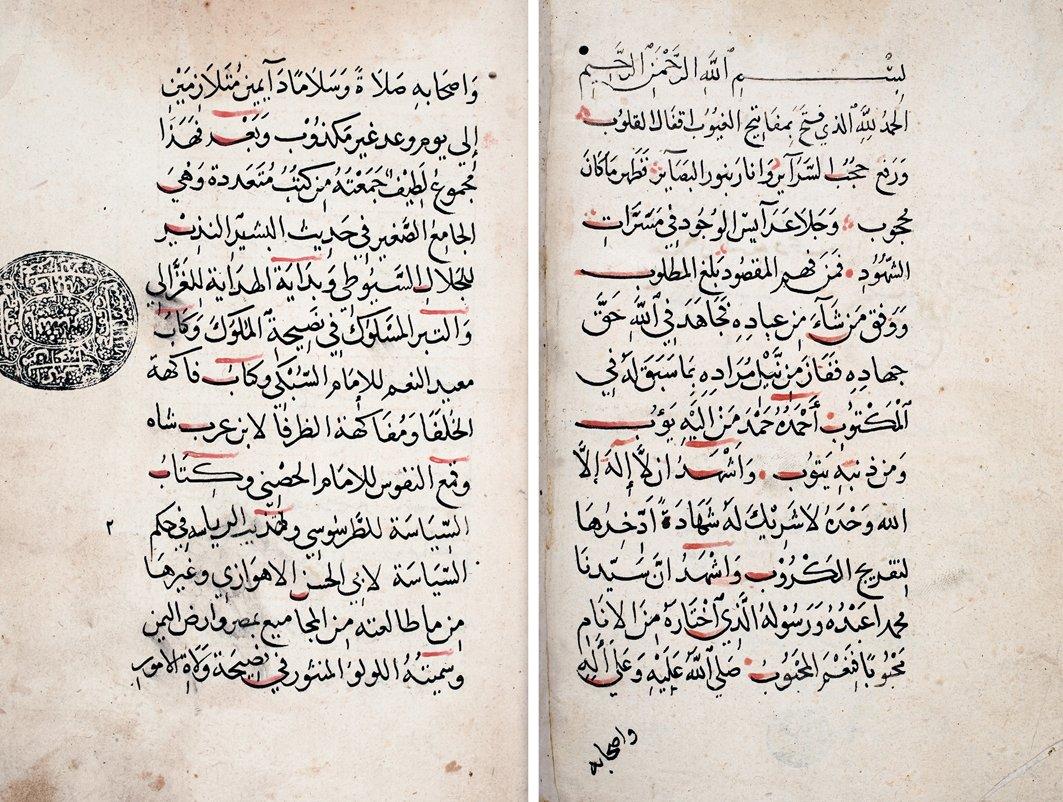 بسم الله الرحمن الرحيم
الحمد لله الذي فتح بمفاتيح الغيوب اقفال القلوب
ورفع حجب السرآير وانار بنور البصآير فظهر ما كان
محجوب وجلا عرآيس الوجود في مسرات
الشهود فمن فهم المقصود بلغ المطلوب
ووفق من شآء من عباده فجاهد في الله حق
جهاده ففاز من نيل مراده بما سبق له في
المكتوب أحمده حمد من اليه يؤب
ومن ذنبه يتوب واشهد ان لا إله إلا
الله وحده لا شريك له شهادة ادخرها
لتفريج الكروب واشهد ان سيدنا
محمدا عبده ورسوله الذي اختاره من الانام
محبوبا فنعم المحبوب صلى الله عليه وعلى آله
واصحابه
واصحابه صلاة وسلاما دآيمين متلازمين
إلى يوم وعد غير مكذوب وبعد فهذا
مجموع لطيف جمعته من كتب متعددة وهي
الجامع الصغير في حديث البشير النذير
للجلال السيوطي وبداية الهداية للغزالي
والتبر المسلوك في نصيحة الملوك وكتاب
معيد النعم للامام السبكي وكتاب فاكهة
الخلفا ومفاكهة الظرفا لابن عرب شاه
وقمع النفوس للامام الحصني وكتاب
السياسة للطرسوسي وتهذيب الرياسه في حكم
٢
السياسة لابي الحسن الاهوازي وغيرها
من ما طالعته من المجاميع بمصر وارض اليمن
وسميته اللولو المنثور في نصيحة ولاة الامور